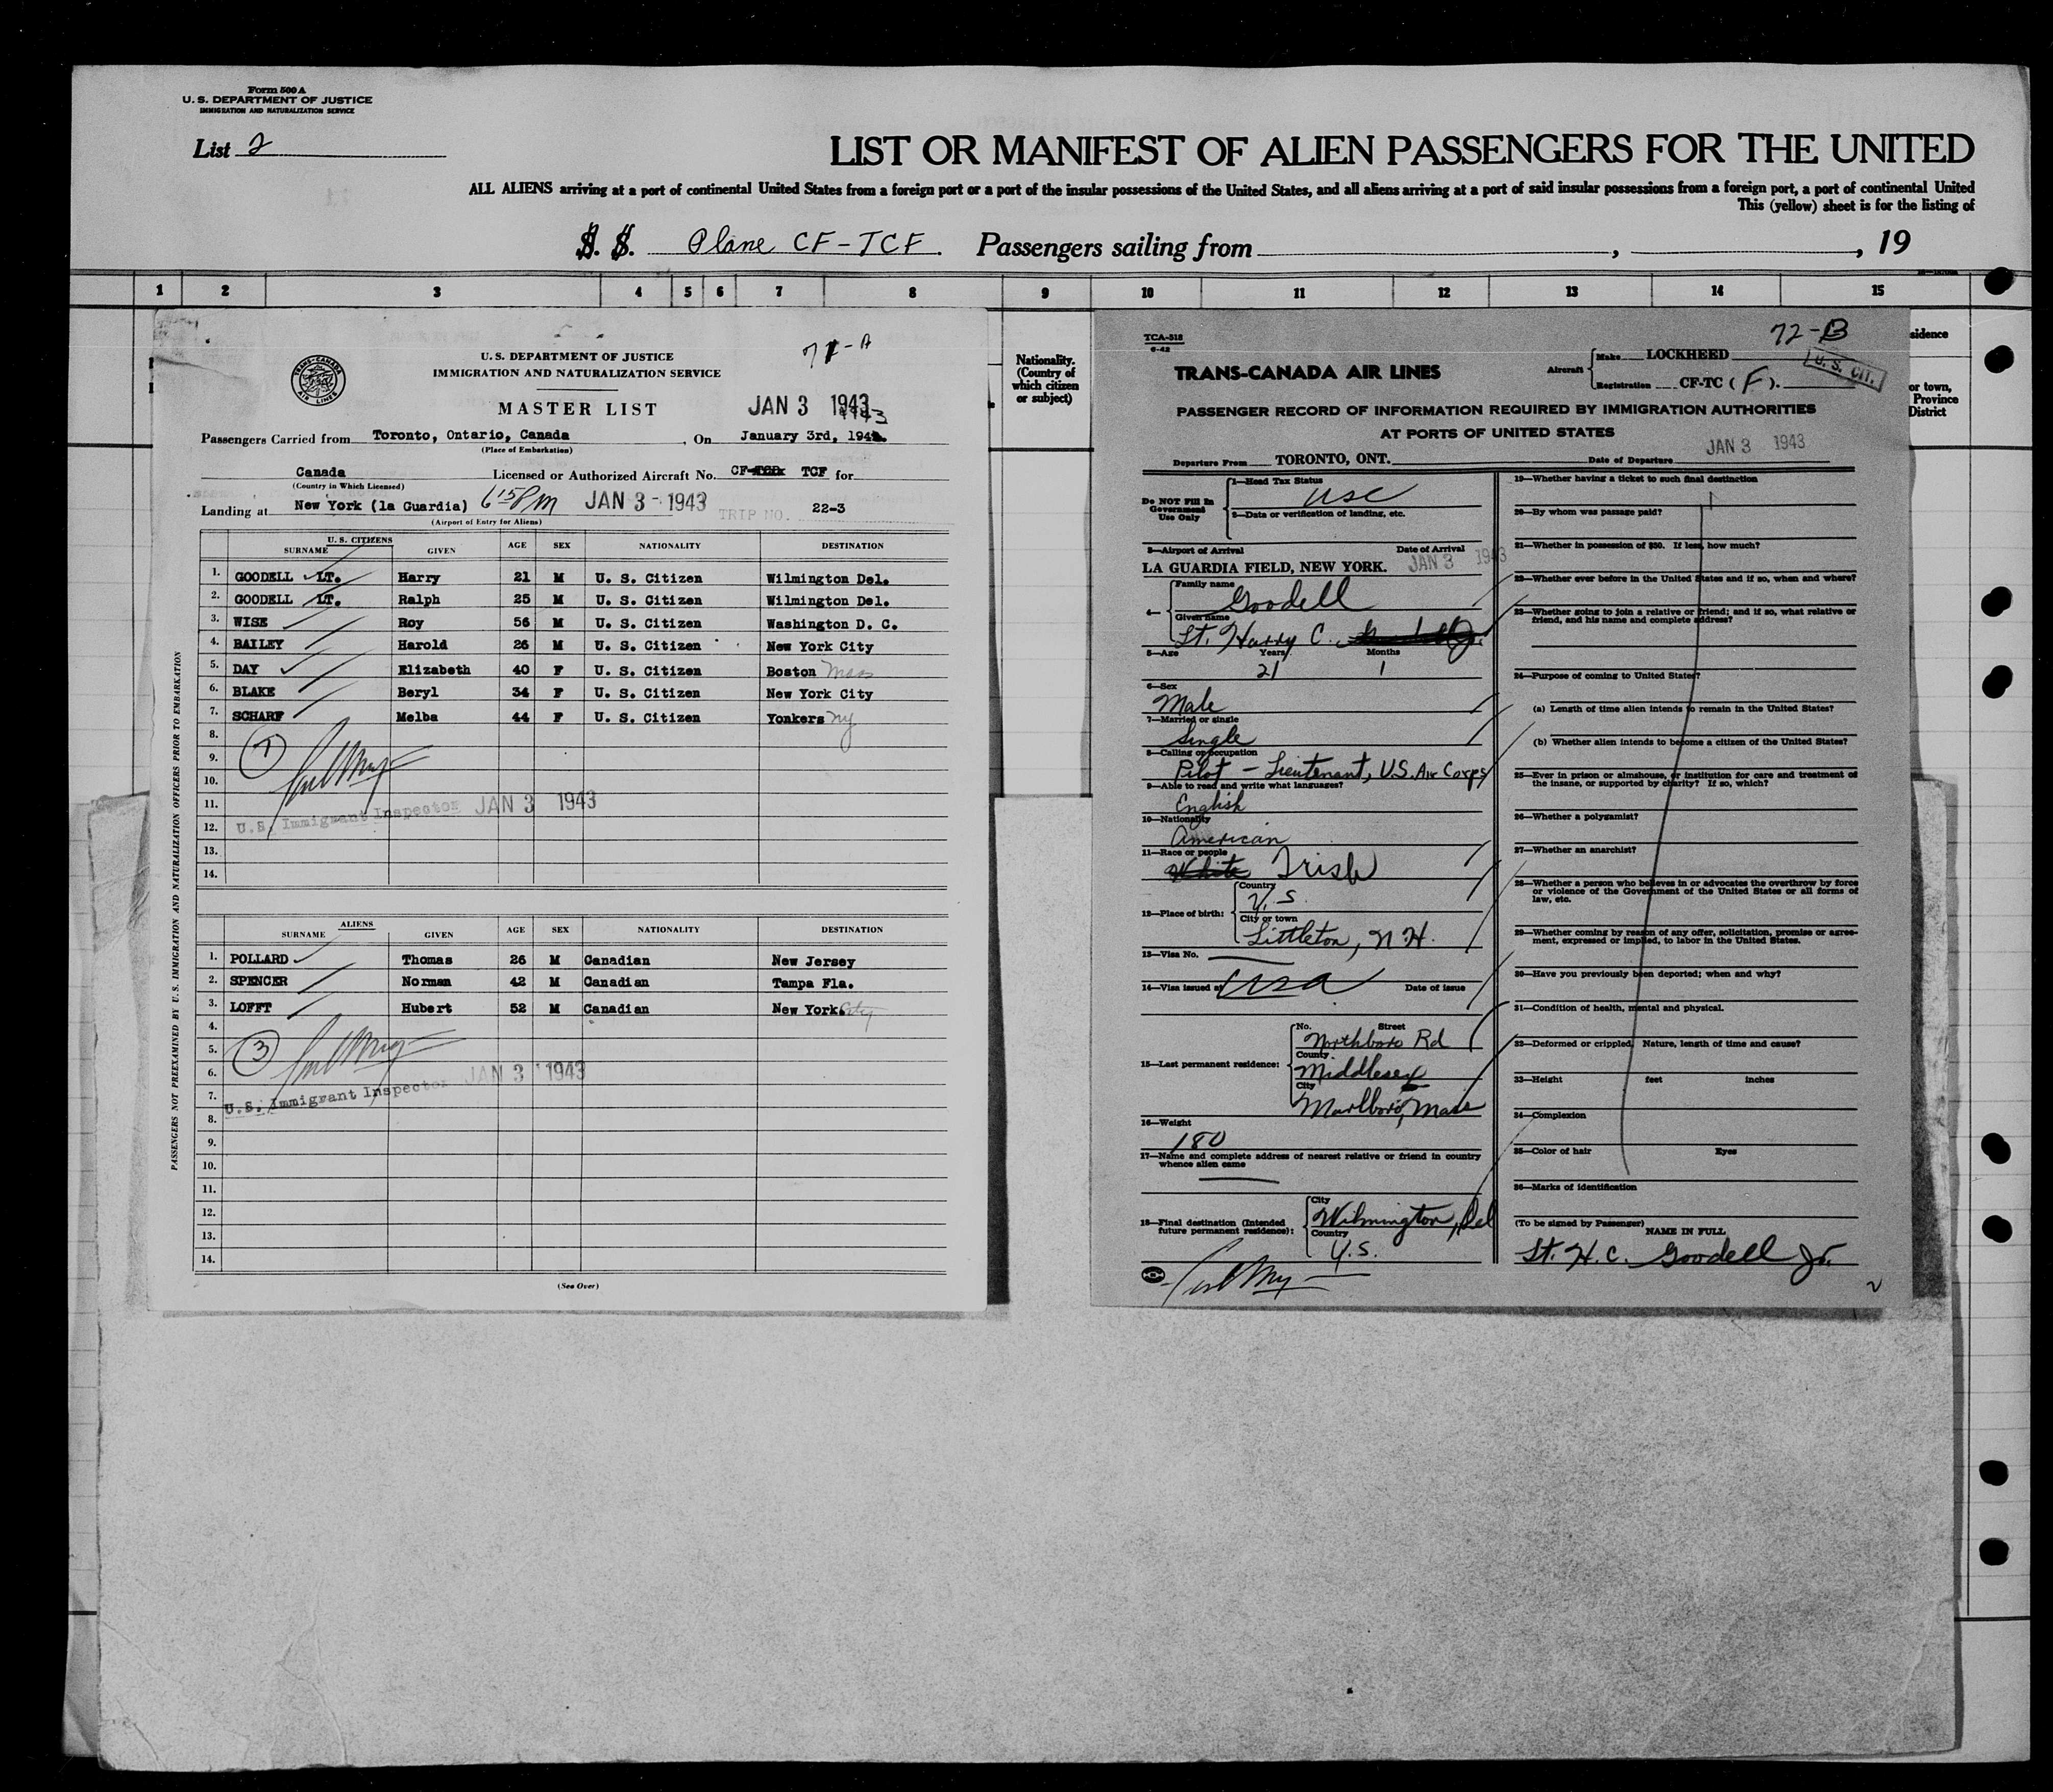 Form 500 A
U. S. DEPARTMENT OF JUSTICE
IMMIGRATION AND NATURALIZATION SERVICE
List 2
LIST OR MANIFEST OF ALIEN PASSENGERS FOR THE UNITED
ALL ALIENS arriving at a port of continental United States from a foreign port or a port of the insular possessions of the United States, and all aliens arriving at a port of said insular possessions from a foreign port, a port of continental United
This (yellow) sheet is for the listing of
S. S. Plane CF-TCF. Passengers sailing from , , 19
1 2 3 4 5 6 7 8 9 10 11 12 13 14 15
Nationality.
(Country of
which citizen
or subject)
sidence
or town,
Province
District
-A
TRANS-CANADA AIR LINES
U. S. DEPARTMENT OF JUSTICE
IMMIGRATION AND NATURALIZATION SERVICE
MASTER LIST JAN 3 1943
1943
Passengers Carried from Toronto, Ontario, Canada , On January 3rd, 194
(Place of Embarkation)
Canada Licensed or Authorized Aircraft No. CF- TCF for
(Country in Which Licensed)
Landing at New York (la Guardia) 6 15 PM JAN 3 - 1943 TRIP NO. 22-3
(Airport of Entry for Aliens)
U. S. CITIZENS
SURNAME GIVEN AGE SEX NATIONALITY DESTINATION
1. GOODELL LT. Harry 21 M U. S. Citizen Wilmington Del.
2. GOODELL LT. Ralph 25 M U. S. Citizen Wilmington Del.
3. WISE Roy 56 M U. S. Citizen Washington D. C.
4. BAILEY Harold 26 M U. S. Citizen New York City
5. DAY Elizabeth 40 F U. S. Citizen Boston Mass
6. BLAKE Beryl 34 F U. S. Citizen New York City
7. SCHARF Melba 44 F U. S. Citizen Yonkers NY
8.
9.
10.
11.
12.
13.
14.
7
U.S. Immigrant Inspector JAN 3 1943
ALIENS
SURNAME GIVEN AGE SEX NATIONALITY DESTINATION
1. POLLARD Thomas 26 M Canadian New Jersey
2. SPENCER Norman 42 M Canadian Tampa Fla.
3. LOFFT Hubert 52 M Canadian New York. City
4.
5.
6.
7.
8.
9.
10.
11.
12.
13.
14.
3
U.S. Immigrant Inspector JAN 3 1943
(See Over)
PASSENGERS NOT PREEXAMINED BY U. S. IMMIGRATION AND NATURALIZATION OFFICERS PRIOR TO EMBARKATION
TCA-518
6-42
72-B
TRANS-CANADA AIR LINES
Aircraft Make LOCKHEED
Registration CF-TC (F).
U. S. CIT.
PASSENGER RECORD OF INFORMATION REQUIRED BY IMMIGRATION AUTHORITIES
AT PORTS OF UNITED STATES
JAN 3 1943
Departure From TORONTO, ONT. Date of Departure
Do NOT Fill In
Government
Use Only
1—Head Tax Status
USC
2—Data or verification of landing, etc.
3—Airport of Arrival Date of Arrival
LA GUARDIA FIELD, NEW YORK. JAN 3 1943
4— Family name
Goodell
Given name
Lt. Harry C. Jr.
5—Age Years Months
21 1
6—Sex
Male
7—Married or single
Single
8—Calling or occupation
Pilot - Lieutenant, U.S. Air Corps
9—Able to read and write what languages?
English
10—Nationality
American
11—Race or people
White Irish
12—Place of birth: Country
U. S.
City or town
Littleton, N H.
13—Visa No.
14—Visa issued at Date of issue
USA
15—Last permanent residence: No. Street
Northboro Rd
County
Middlesex
City
Marlboro, Mass
16—Weight
180
17—Name and complete address of nearest relative or friend in country
whence alien came
18—Final destination (Intended
future permanent residence):
City
Wilmington, Del
Country
U. S.
19—Whether having a ticket to such final destination
20—By whom was passage paid?
21—Whether in possession of $50. If less, how much?
22—Whether ever before in the United States and if so, when and where?
23—Whether going to join a relative or friend; and if so, what relative or
friend, and his name and complete address?
24—Purpose of coming to United States?
(a) Length of time alien intends to remain in the United States?
(b) Whether alien intends to become a citizen of the United States?
25—Ever in prison or almshouse, or institution for care and treatment of
the insane, or supported by charity? If so, which?
26—Whether a polygamist?
27—Whether an anarchist?
28—Whether a person who believes in or advocates the overthrow by force
or violence of the Government of the United States or all forms of
law, etc.
29—Whether coming by reason of any offer, solicitation, promise or agree-
ment, expressed or implied, to labor in the United States.
30—Have you previously been deported; when and why?
31—Condition of health, mental and physical.
32—Deformed or crippled. Nature, length of time and cause?
33—Height feet inches
34—Complexion
35—Color of hair Eyes
36—Marks of identification
(To be signed by Passenger) NAME IN FULL
Lt. H. C. Goodell Jr.
2